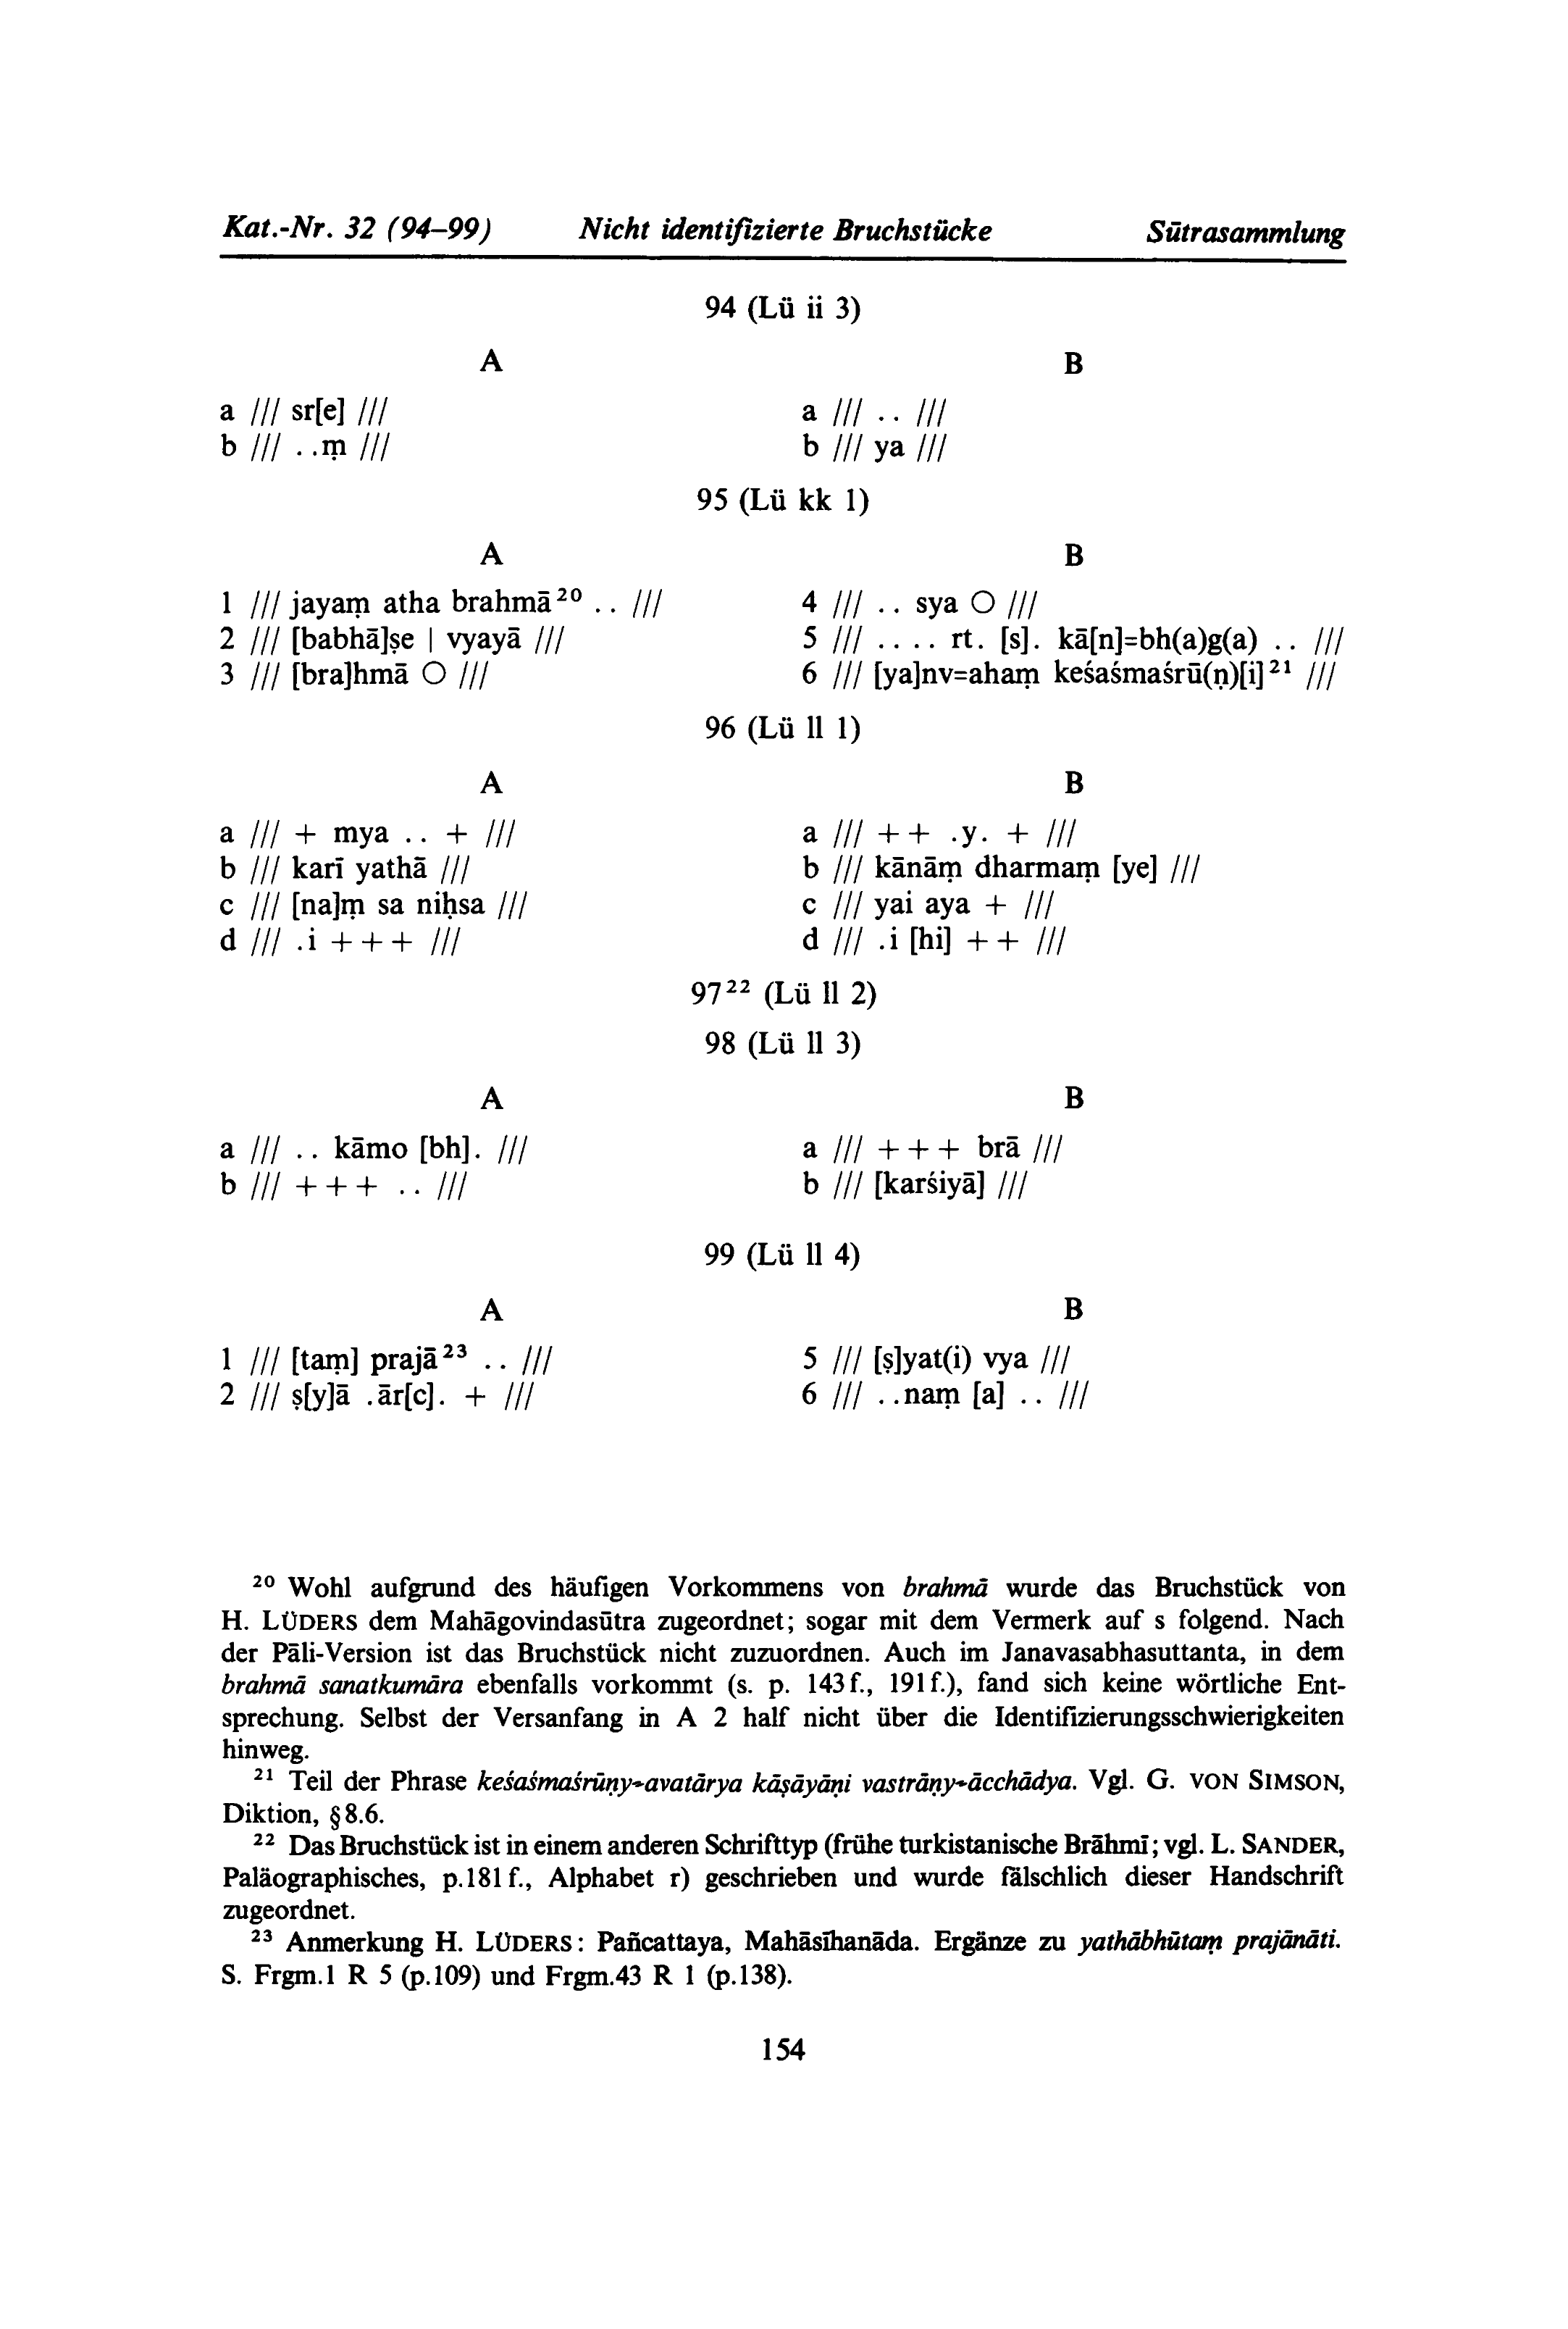 Kat.-Nr. 32 (94–99) Nicht identifizierte Bruchstücke Sūtrasammlung
94 (Lü ii 3)
A B
a /// sr[e] /// a /// .. ///
b /// ..ṃ /// b /// ya ///
95 (Lü kk 1)
A B
1 /// jayaṃ atha brahmā²⁰ .. /// 4 /// .. sya ○ ///
2 /// [babhā]ṣe | vyayā /// 5 /// .... rt. [s]. kā[n]=bh(a)g(a) .. ///
3 /// [bra]hmā ○ /// 6 /// [ya]nv=ahaṃ keśaśmaśrū(ṇ)[i]²¹ ///
96 (Lü ll 1)
A B
a /// + mya .. + /// a /// ++ .y. + ///
b /// karī yathā /// b /// kānāṃ dharmaṃ [ye] ///
c /// [na]ṃ sa niḥsa /// c /// yai aya + ///
d /// .i +++ /// d /// .i [hi] ++ ///
97²² (Lü ll 2)
98 (Lü ll 3)
A B
a /// .. kāmo [bh]. /// a /// +++ brā ///
b /// +++ .. /// b /// [karśiyā] ///
99 (Lü ll 4)
A B
1 /// [taṃ] prajā²³ .. /// 5 /// [ṣ]yat(i) vya ///
2 /// ṣ[y]ā .ār[c]. + /// 6 /// ..naṃ [a] .. ///
²⁰ Wohl aufgrund des häufigen Vorkommens von brahmā wurde das Bruchstück von
H. LÜDERS dem Mahāgovindasūtra zugeordnet; sogar mit dem Vermerk auf s folgend. Nach
der Pāli-Version ist das Bruchstück nicht zuzuordnen. Auch im Janavasabhasuttanta, in dem
brahmā sanatkumāra ebenfalls vorkommt (s. p. 143f., 191f.), fand sich keine wörtliche Ent-
sprechung. Selbst der Versanfang in A 2 half nicht über die Identifizierungsschwierigkeiten
hinweg.
²¹ Teil der Phrase keśaśmaśrūṇy-avatārya kāṣāyāṇi vastrāṇy-ācchādya. Vgl. G. VON SIMSON,
Diktion, §8.6.
²² Das Bruchstück ist in einem anderen Schrifttyp (frühe turkistanische Brāhmī; vgl. L. SANDER,
Paläographisches, p.181f., Alphabet r) geschrieben und wurde fälschlich dieser Handschrift
zugeordnet.
²³ Anmerkung H. LÜDERS: Pañcattaya, Mahāsīhanāda. Ergänze zu yathābhūtaṃ prajānāti.
S. Frgm.1 R 5 (p.109) und Frgm.43 R 1 (p.138).
154